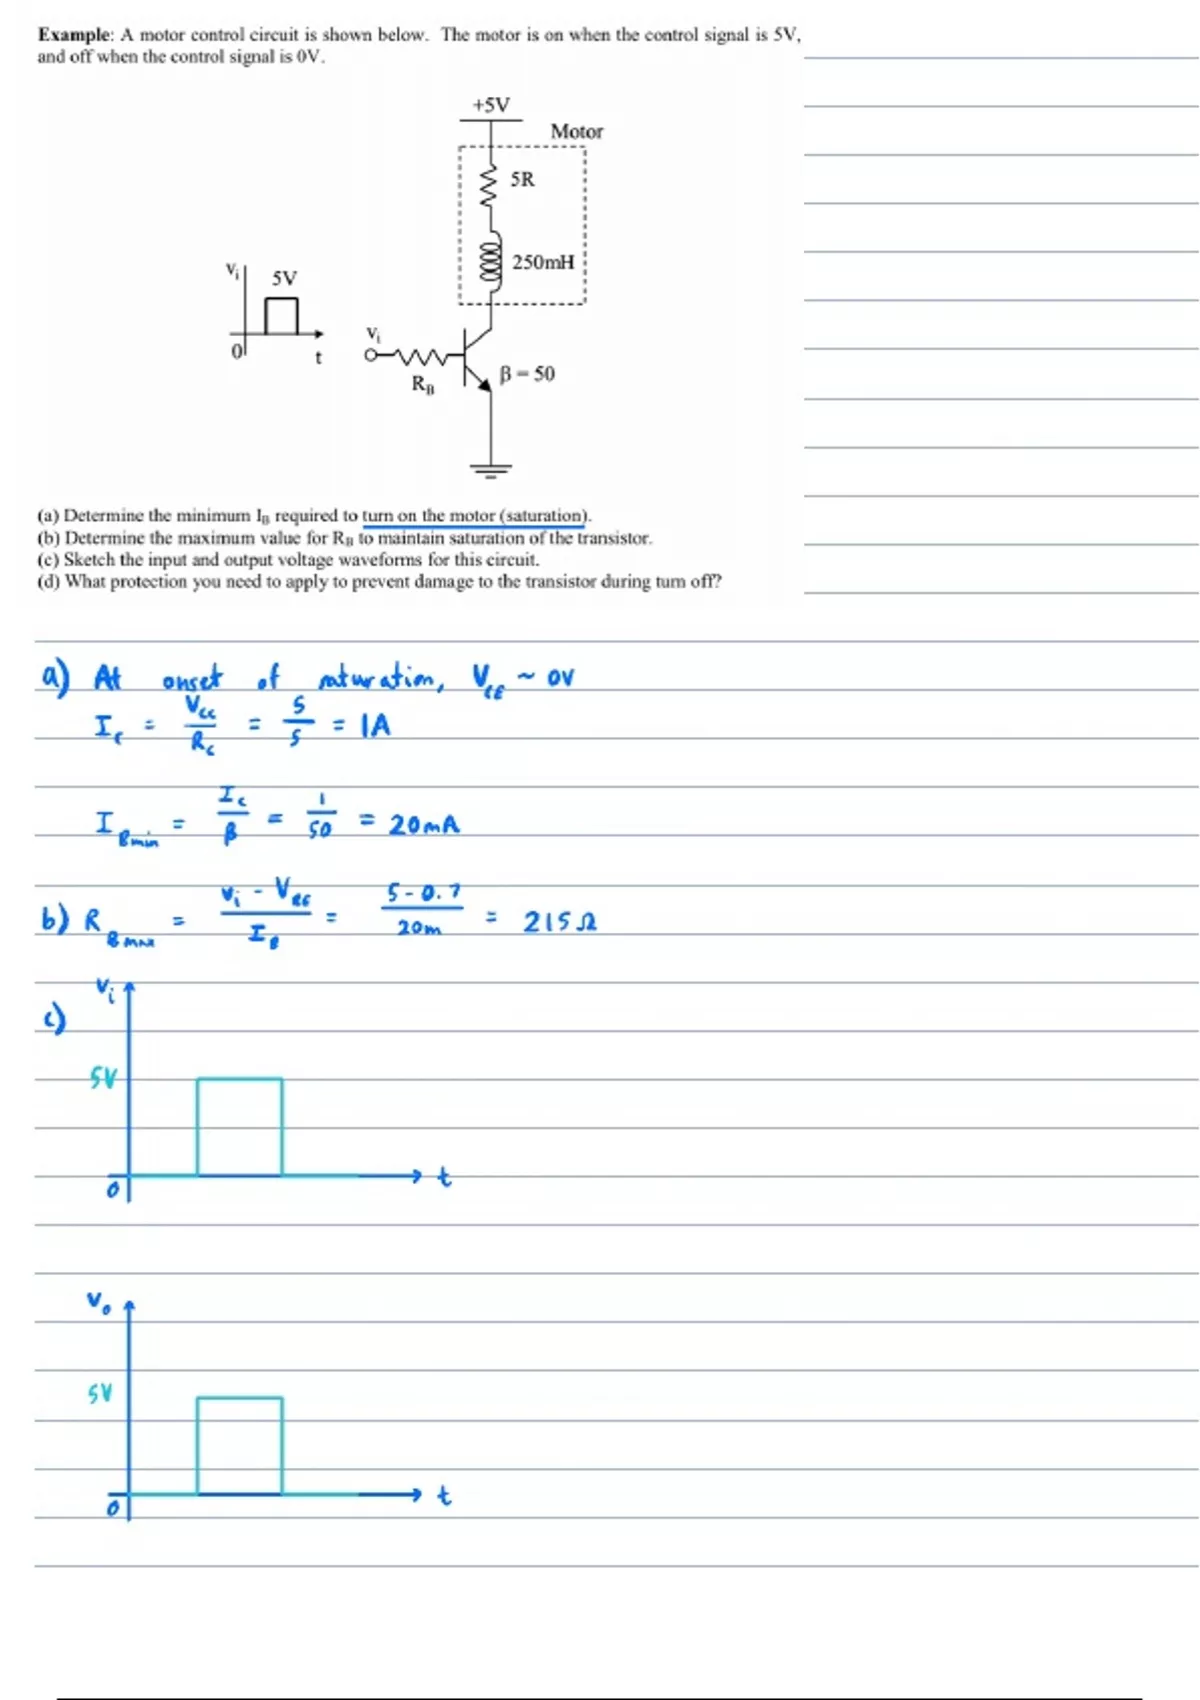 Example: A motor control circuit is shown below. The motor is on when the control signal is 5V,
and off when the control signal is 0V.
+5V
Motor
5R
250mH
Vi
5V
0
t
Vi
RB
β = 50
(a) Determine the minimum IB required to turn on the motor (saturation).
(b) Determine the maximum value for RB to maintain saturation of the transistor.
(c) Sketch the input and output voltage waveforms for this circuit.
(d) What protection you need to apply to prevent damage to the transistor during turn off?
a) At onset of saturation, VCE ~ 0V
Ic = Vcc/Rc = 5/5 = 1A
IBmin = Ic/β = 1/50 = 20mA
b) RBmax = (Vi - VBE)/IB = (5-0.7)/20m = 215Ω
c)
Vi
5V
0
t
Vo
5V
0
t